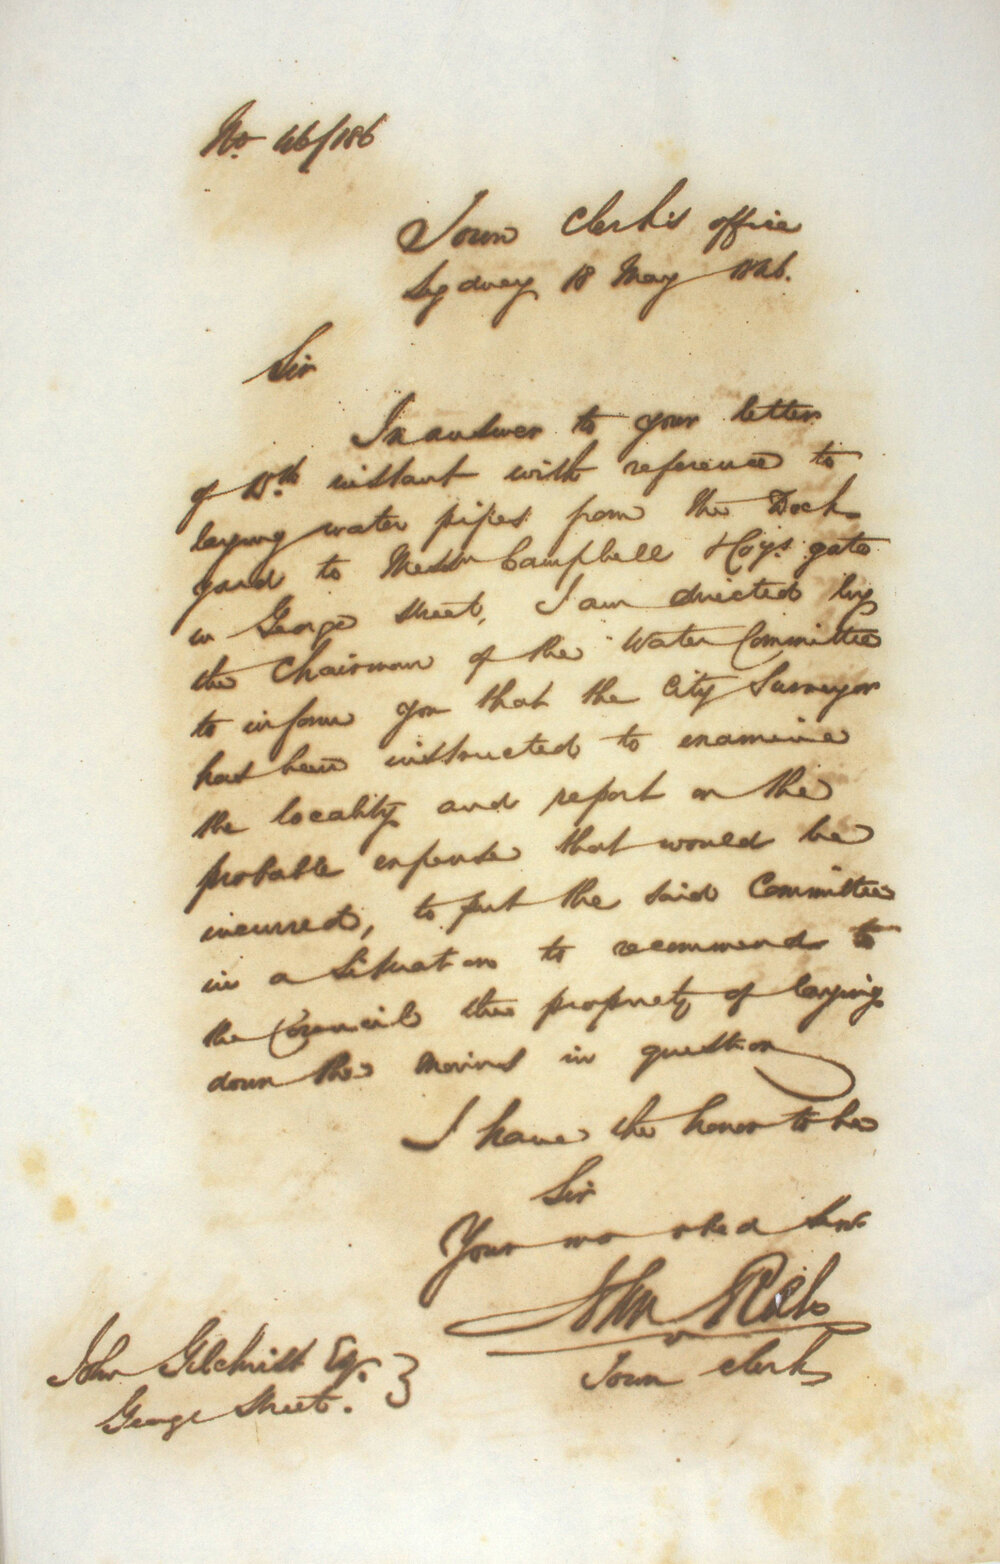 No. 46/186
Town Clerk's office
Sydney 18 May 1846.
Sir
In answer to your letter
of 15th instant with reference to
laying water pipes from the Dock
yard to Messrs Campbell & Coys. gate
in George Street, I am directed by
the Chairman of the Water Committee
to inform you that the City Surveyor
has been instructed to examine
the locality and report on the
probable expense that would be
incurred, to put the said Committee
in a Situation to recommend to
the Council the propriety of laying
down the mains in question
I have the honor to be
Sir
Your mo obed Servt
John
Town Clerk
John Gilchrist Esq.
George Street.